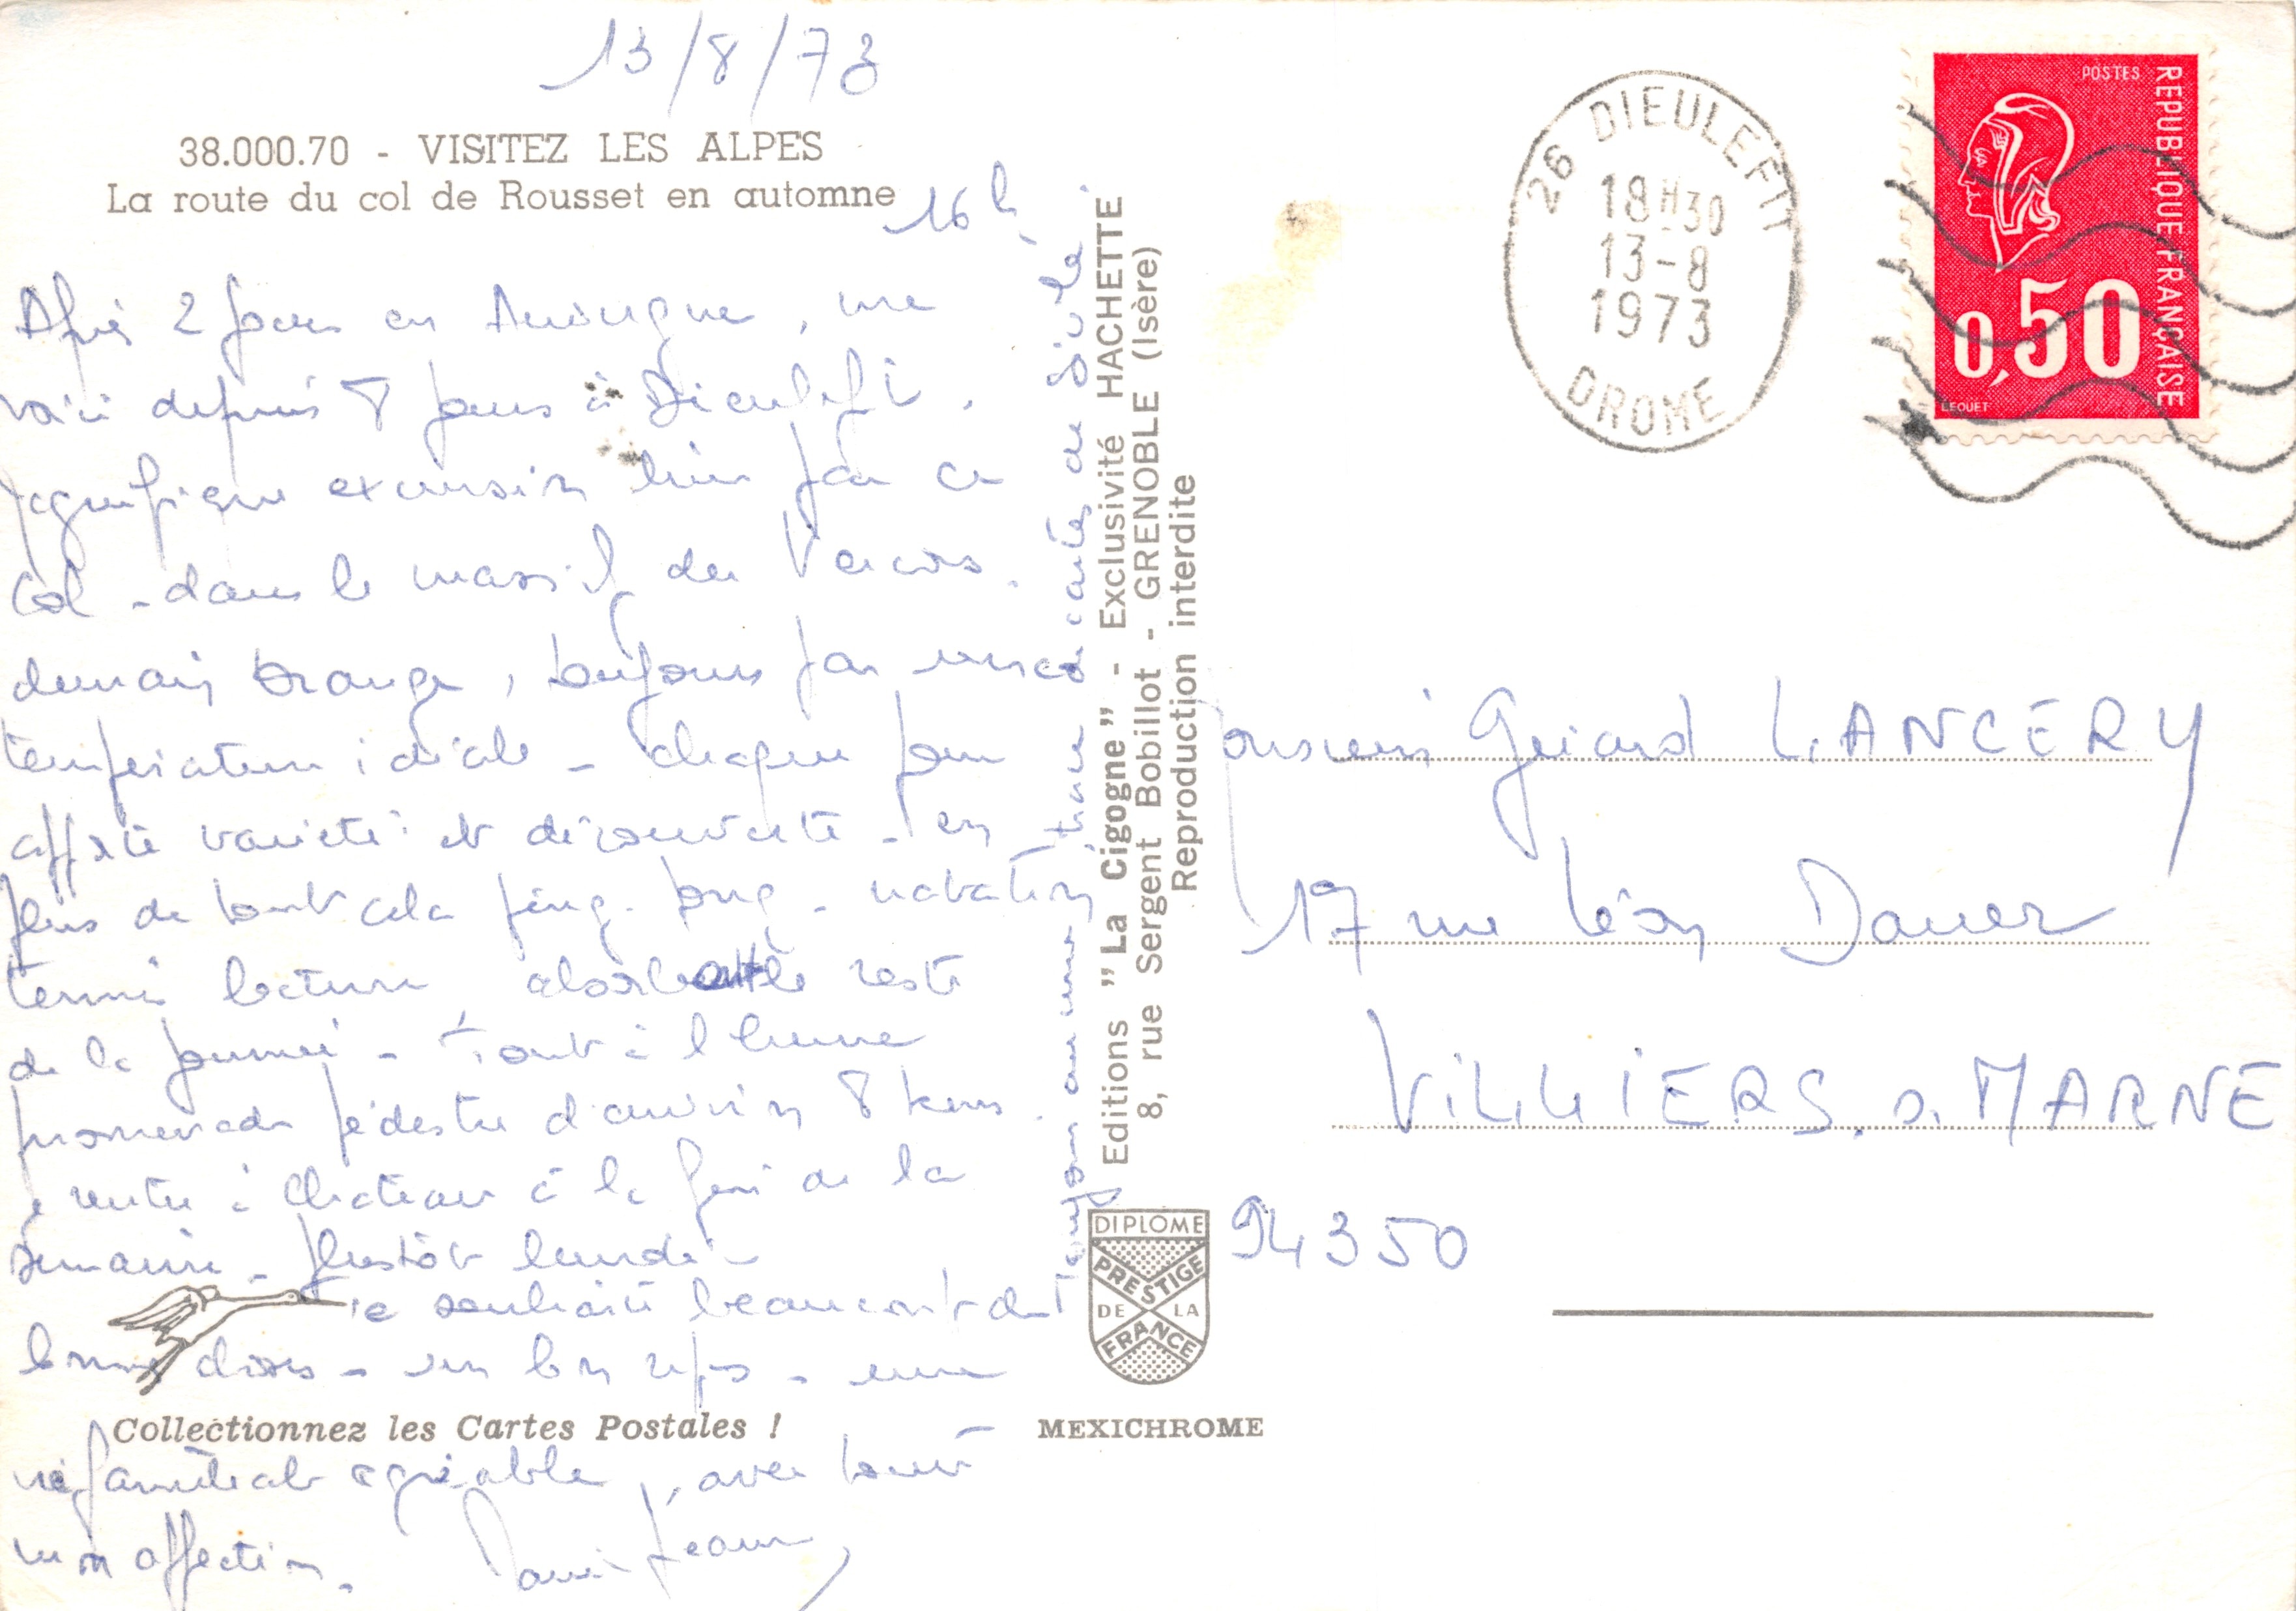 13/8/73
38.000.70 - VISITEZ LES ALPES
La route du col de Rousset en automne
16 h
Après 2 jours en Auvergne, me
voici depuis 8 jours à Dieulefit.
magnifique excursion hier par ce
col - dans le massif du Vercors.
demain Orange, toujours par une
température idéale - chaque jour
apporte variété et découverte - en
plus de tout cela ping-pong - natation
tennis lecture absorbent le reste
de la journée - Tout à l'heure
promenade pédestre d'environ 8 kms.
je rentre à Chateau à la fin de la
semaine - plustôt lundi -
Je te souhaite beaucoup de
bonnes choses - un bon repos - une
agréable, avec toute
mon affection.
Collectionnez les Cartes Postales !
MEXICHROME
Editions "La Cigogne" - Exclusivité HACHETTE
8, rue Sergent Bobillot - GRENOBLE (Isère)
Reproduction interdite
DIPLOME
PRESTIGE
DE LA
FRANCE
26 DIEULEFIT
18H30
13-8
1973
DROME
POSTES
REPUBLIQUE FRANÇAISE
0,50
LEQUET
Monsieur Gérard LANCERY
17 rue Léon Dauer
VILLIERS s. MARNE
94350